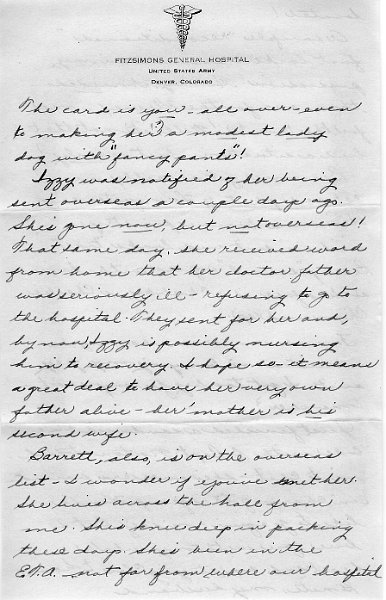 FITZSIMONS GENERAL HOSPITAL
UNITED STATES ARMY
DENVER, COLORADO
The card is you - all over - even
to making her ? a modest lady
dog with "fancy pants"!
Izzy was notified of her being
sent overseas a couple days ago.
She's gone now, but not overseas!
That same day, she received word
from home that her doctor father
was seriously ill - refusing to go to
the hospital. They sent for her and,
by now, Izzy is possibly nursing
him to recovery. I hope so - it means
a great deal to have her very own
father alive - her 'mother' is his
second wife.
Barrett, also, is on the overseas
list - I wonder if you've met her.
She lives across the hall from
me. She's knee deep in packing
these days. She's been in the
E.T.A. - not far from where our hospital